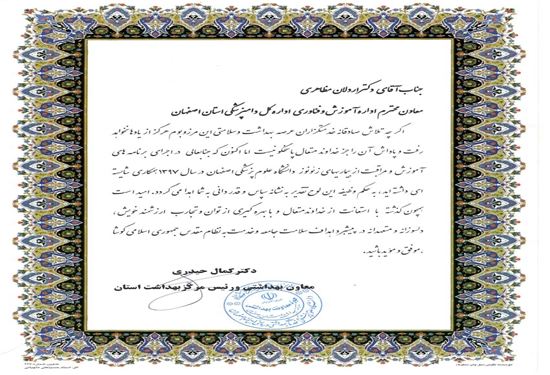 جناب آقای دکتر اردلان مظاهری
معاون محترم اداره آموزش و فناوری اداره کل دامپزشکی استان اصفهان
اگر چه تلاش صادقانه خدمتگزاران عرصه بهداشت و سلامتی این مرز و بوم هرگز از یادها نخواهد
رفت و پاداش آن را جز خداوند متعال پاسخگو نیست اما اکنون که جنابعالی در اجرای برنامه های
آموزش و مراقبت از بیماریهای زئونوز دانشگاه علوم پزشکی اصفهان در سال ۱۳۹۷ همکاری شایسته
ای داشته اید، به حکم وظیفه این لوح تقدیر به نشانه سپاس و قدردانی به شما اهدا می گردد. امید است
همچون گذشته با استعانت از خداوند متعال و با بهره گیری از توان و تجارب ارزشمند خویش،
دلسوزانه و متعهدانه در پیشبرد اهداف سلامت جامعه و خدمت به نظام مقدس جمهوری اسلامی کوشا
و موفق و موید باشید.
دکتر کمال حیدری
معاون بهداشتی و رئیس مرکز بهداشت استان